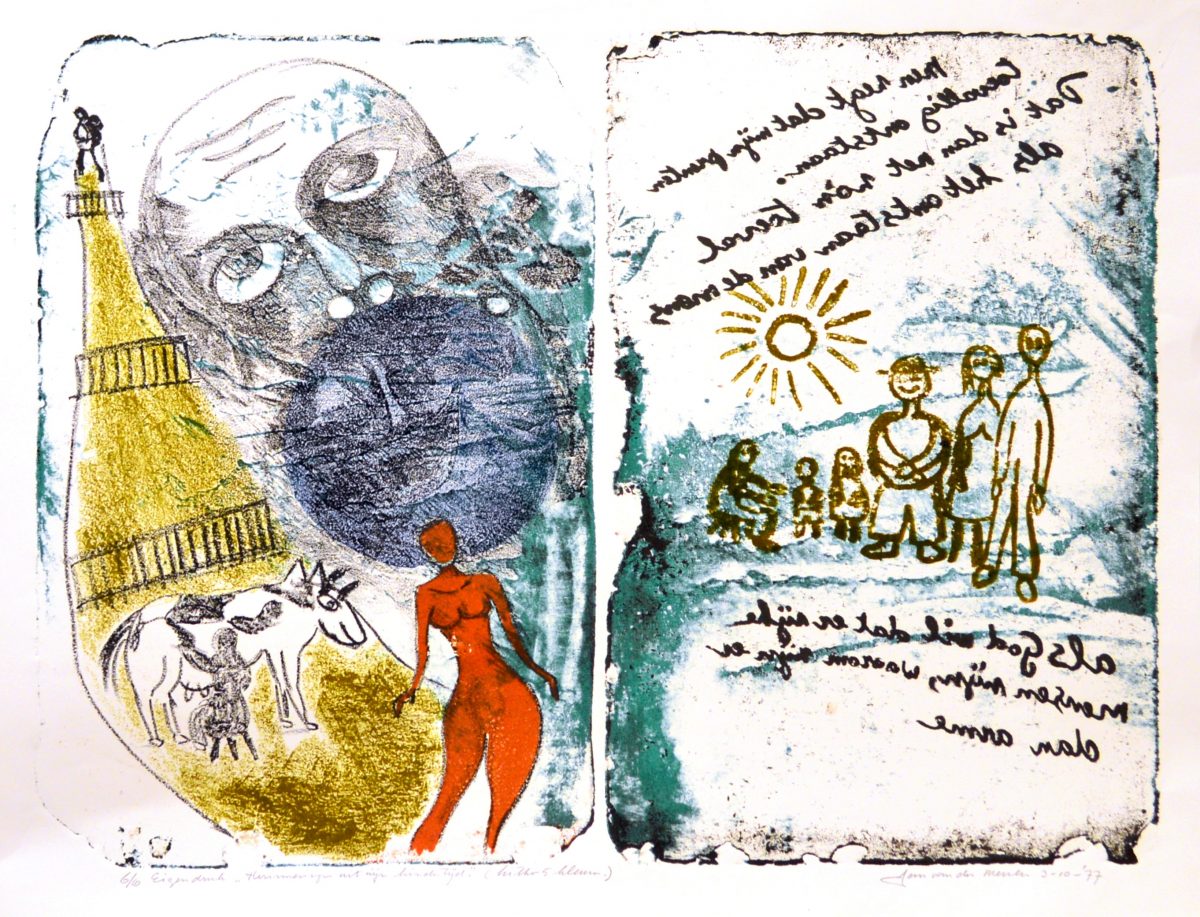 men zegt dat mijn prenten
toevallig ontstaan.
Dat is dan net zo'n toeval
als het ontstaan van de mens
als God wil dat er rijke
mensen zijn, waarom zijn er
dan arme
6/10 Eigendruk „Herinneringen uit mijn kindertijd." (litho 5 kleuren) van der 2-10-'77